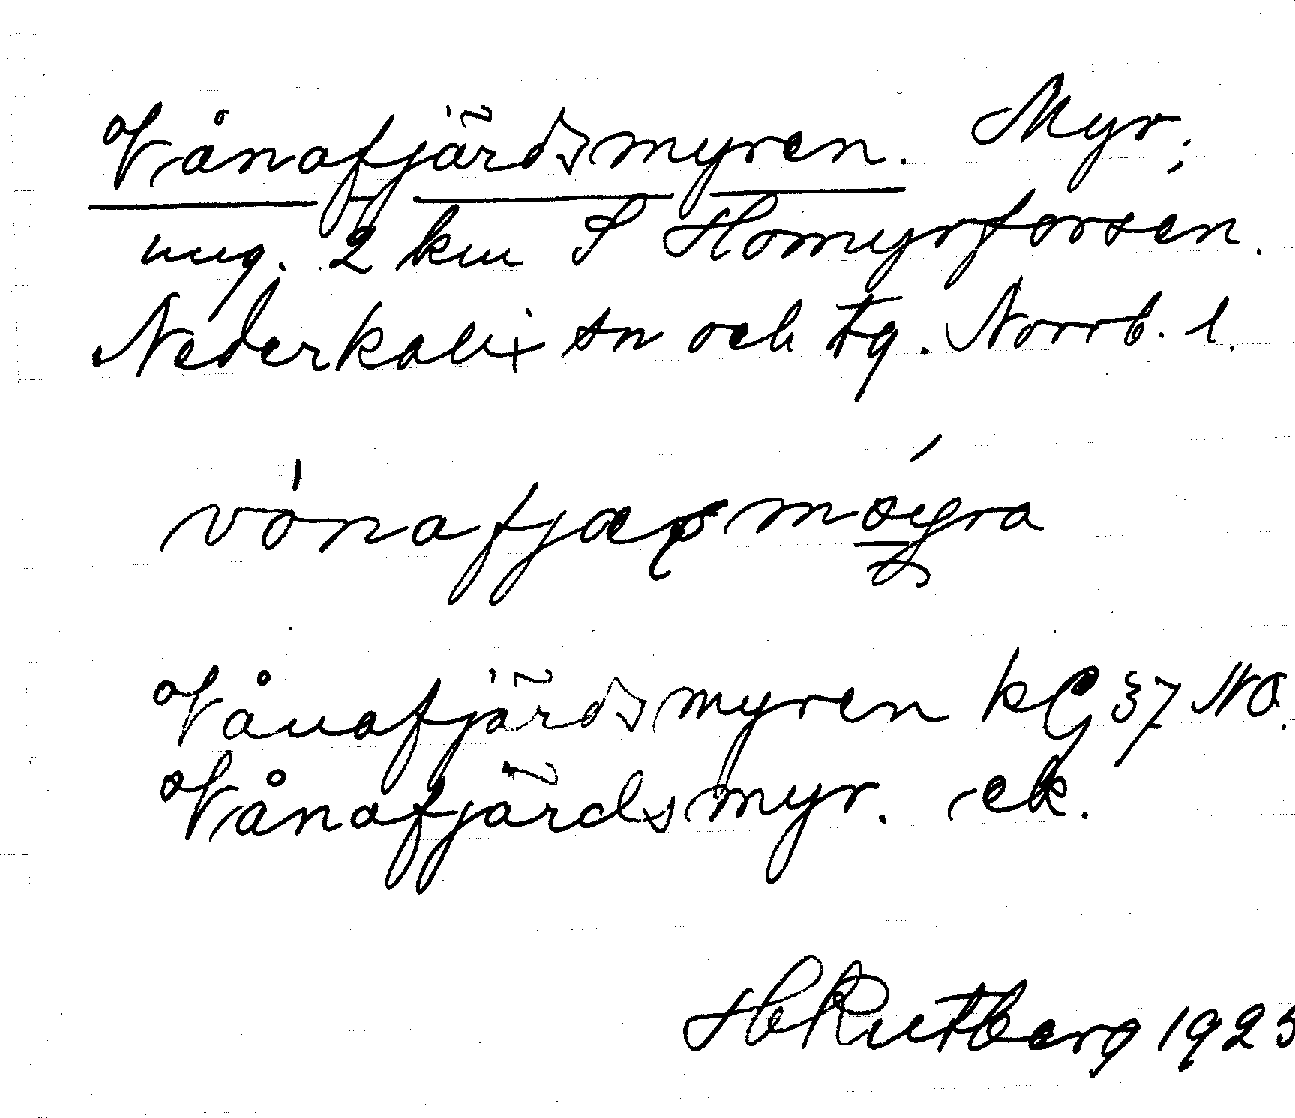 Vånafjärdsmyren. Myr;
ung. 2 km S Homyrforsen.
Nederkalix sn och tg. Norrb. l.
Vånafjärdsmyren k G 37 NO.
Vånafjärdsmyr. ek.
H Rutberg 1925